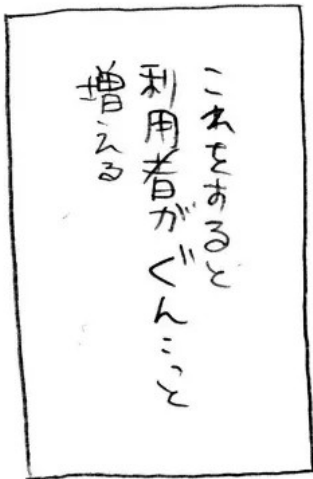 これをすると
利用者がぐんこっと
増える